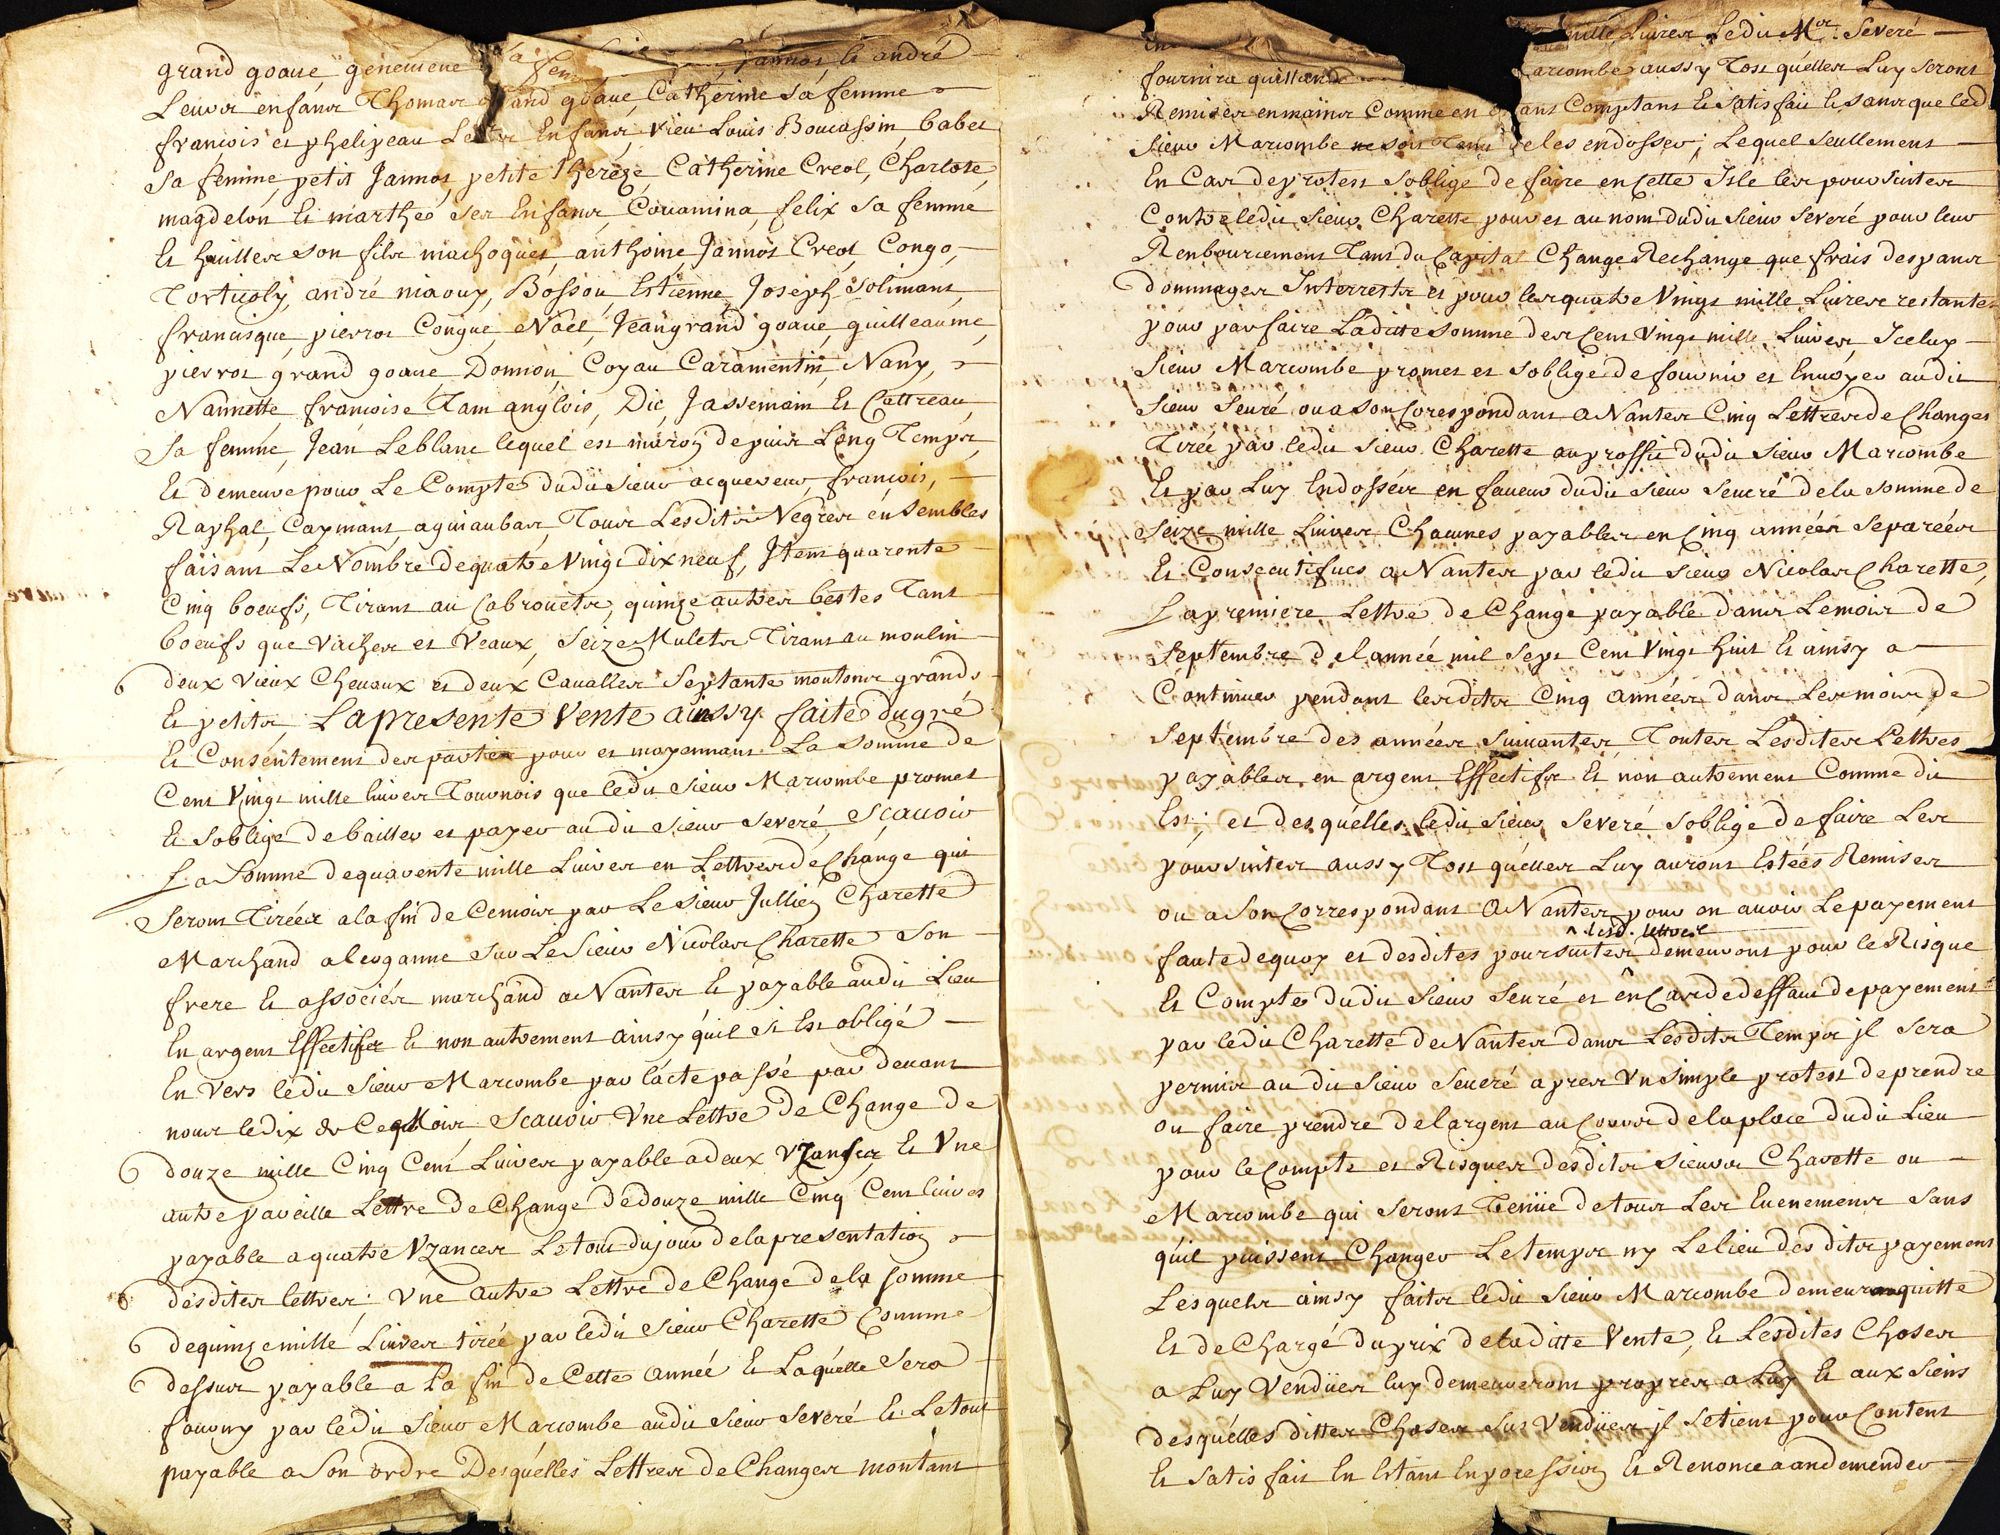 grand goave genevieve sa fem Jannot et andré
Leurs enfans Thomas grand goave, Catherine sa femme
francois et phelipeau Leurs Enfans, vieu Louis Boucassin, babet
sa femme, petit Jannot, petite Thereze, Catherine Creol, Charlote,
magdelon et marthe ses Enfans, Couamina, felix sa femme
Et huilles son fils machoquet, anthoine Jannot Creol, Congo,
Torticoly, andré niaouy, Bossou, Estienne, Joseph Solimant,
francisque, pierrot Congue, Noël, Jean grand goave, guilleaume,
pierrot grand goave, Domion, Coyau Caramentin, Nany,
Nannette francoise Tam anglois, Dic, Jassemain Et Cattreau,
sa femme, Jean Leblanc lequel est maron depuis Long Temps,
Et demeure pour Le Compte dudit sieur acquereur, francois,
Raphal, Caymant, aguiaubas, Tous Lesdits Negres ensembles
faisant Le Nombre de quatre Vingt dix neuf, Item quarente
Cinq boeufs, Tirant au Cabrouets, quinze autres bestes Tant
boeufs que vaches et Veaux, Seize Mulets Tirant au moulin
deux vieux Chevaux et deux Cavalles Septante moutons grands
Et petits, La presente Vente ainsy faite du gré
Et Consentement des parties pour et moyennant La somme de
Cent Vingt mille livres Tournois que ledit sieur Marcombe promet
Et soblige de bailler et payer au dit sieur Severé, Sçavoir
La Somme de quarente mille Livres en Lettres de Change qui
seront Tirées a la fin de Cemois par Le sieur Jullien Charette
Marchand a leoganne sur Le Sieur Nicolas Charette Son
frere Et associés marchand a Nantes Et payable audit Lieu
En argent Effectifs Et non autrement ainsy quil si Est obligé
En vers ledit Sieur Marcombe par lacte passé par devant
nous le dix de Ce Mois Scavoir Vne Lettre de Change de
douze mille Cinq Cent Livres payable a deux Vzances, Et Vne
autre pareille Lettre de Change de douze mille Cinq Cent livres
payable a quatre Vzances Le tout du jour de la presentation
desdites lettres; Vne autre Lettre de Change de la somme
de quinze mille Livres tirée par ledit sieur Charette Comme
dessus payable a La fin de Cette année Et Laquelle sera
fourny par ledit sieur Marcombe audit sieur severé Et Le tout
payable a Son ordre Desquelles Lettres de Changes montant
mille Livres Ledit Mor. Severé
fournira quittance arcombe aussy Tost quelles Luy seront
Remises en mains Comme en Estant Comptant Et satisfait Et sans que led.
sieur Marcombe ne soit Tenu de les endosser; Lequel seullement
En Cas de protest soblige de faire en Cette Isle les poursuites
Contre ledit sieur Charette pour et au nom dudit sieur severé pour leur
Renboursement Tant du Capital Change Rechange que frais despans
dommages Interrests et pour les quatre Vingt mille Livres restantes
pour parfaire Laditte somme des Cent Vingt mille Livres, Iceluy
sieur Marcombe promet et soblige de fournir et Envoyer audit
sieur seuré ou a son Corespondant a Nantes Cinq Lettres de Changes
Tirée par ledit sieur Charette au proffit dudit sieur Marcombe
Et par Luy Endossées en faveur dudit sieur seueré de la somme de
Seize mille Livres Chacunes payables en Cinq années Separées
Et Consecutifues a Nantes par ledit sieur Nicolas Charette,
La premiere Lettre de Change payable dans Le mois de
septembre de l'année mil sept Cent Vingt huit Et ainsy a
Continuer pendant lesdits Cinq années dans Les mois de
septembre des années Suivantes, Toutes Lesdites Lettres
payables en argent Effectifs Et non autrement Comme dit
Est; et desquelles ledit sieur severé soblige de faire Les
poursuites aussy Tost quelles Luy auront Estées Remises
ou a Son Correspondant a Nantes pour en avoir Le payement
^ lesd. lettres
faute dequoy et desdites poursuites demeuront pour le Risque
Et Compte dudit sieur seuré et en Cas de deffaut de payement
par ledit Charette de Nantes dans Lesdits Temps il sera
permis au dit sieur seueré apres Vn simple protest de prendre
ou faire prendre de largent au Cours de la place dudit Lieu
pour le Compte et Risques desdits sieurs Charette ou
Marcombe qui seront Tenüe de tous Les Evenemens Sans
quil puissent Changer Le temps ny Le lieu desdits payement
Lesquels ainsy faits ledit sieur Marcombe demeura quitte
Et de Chargé du prix de laditte Vente, Et Lesdites Choses
a Luy Vendües luy demeureront propres a Luy Et aux siens
desquelles dittes Choses sus Vendües il se tient pour Content
Et satisfait En Estant En possession Et Renonce a en demender